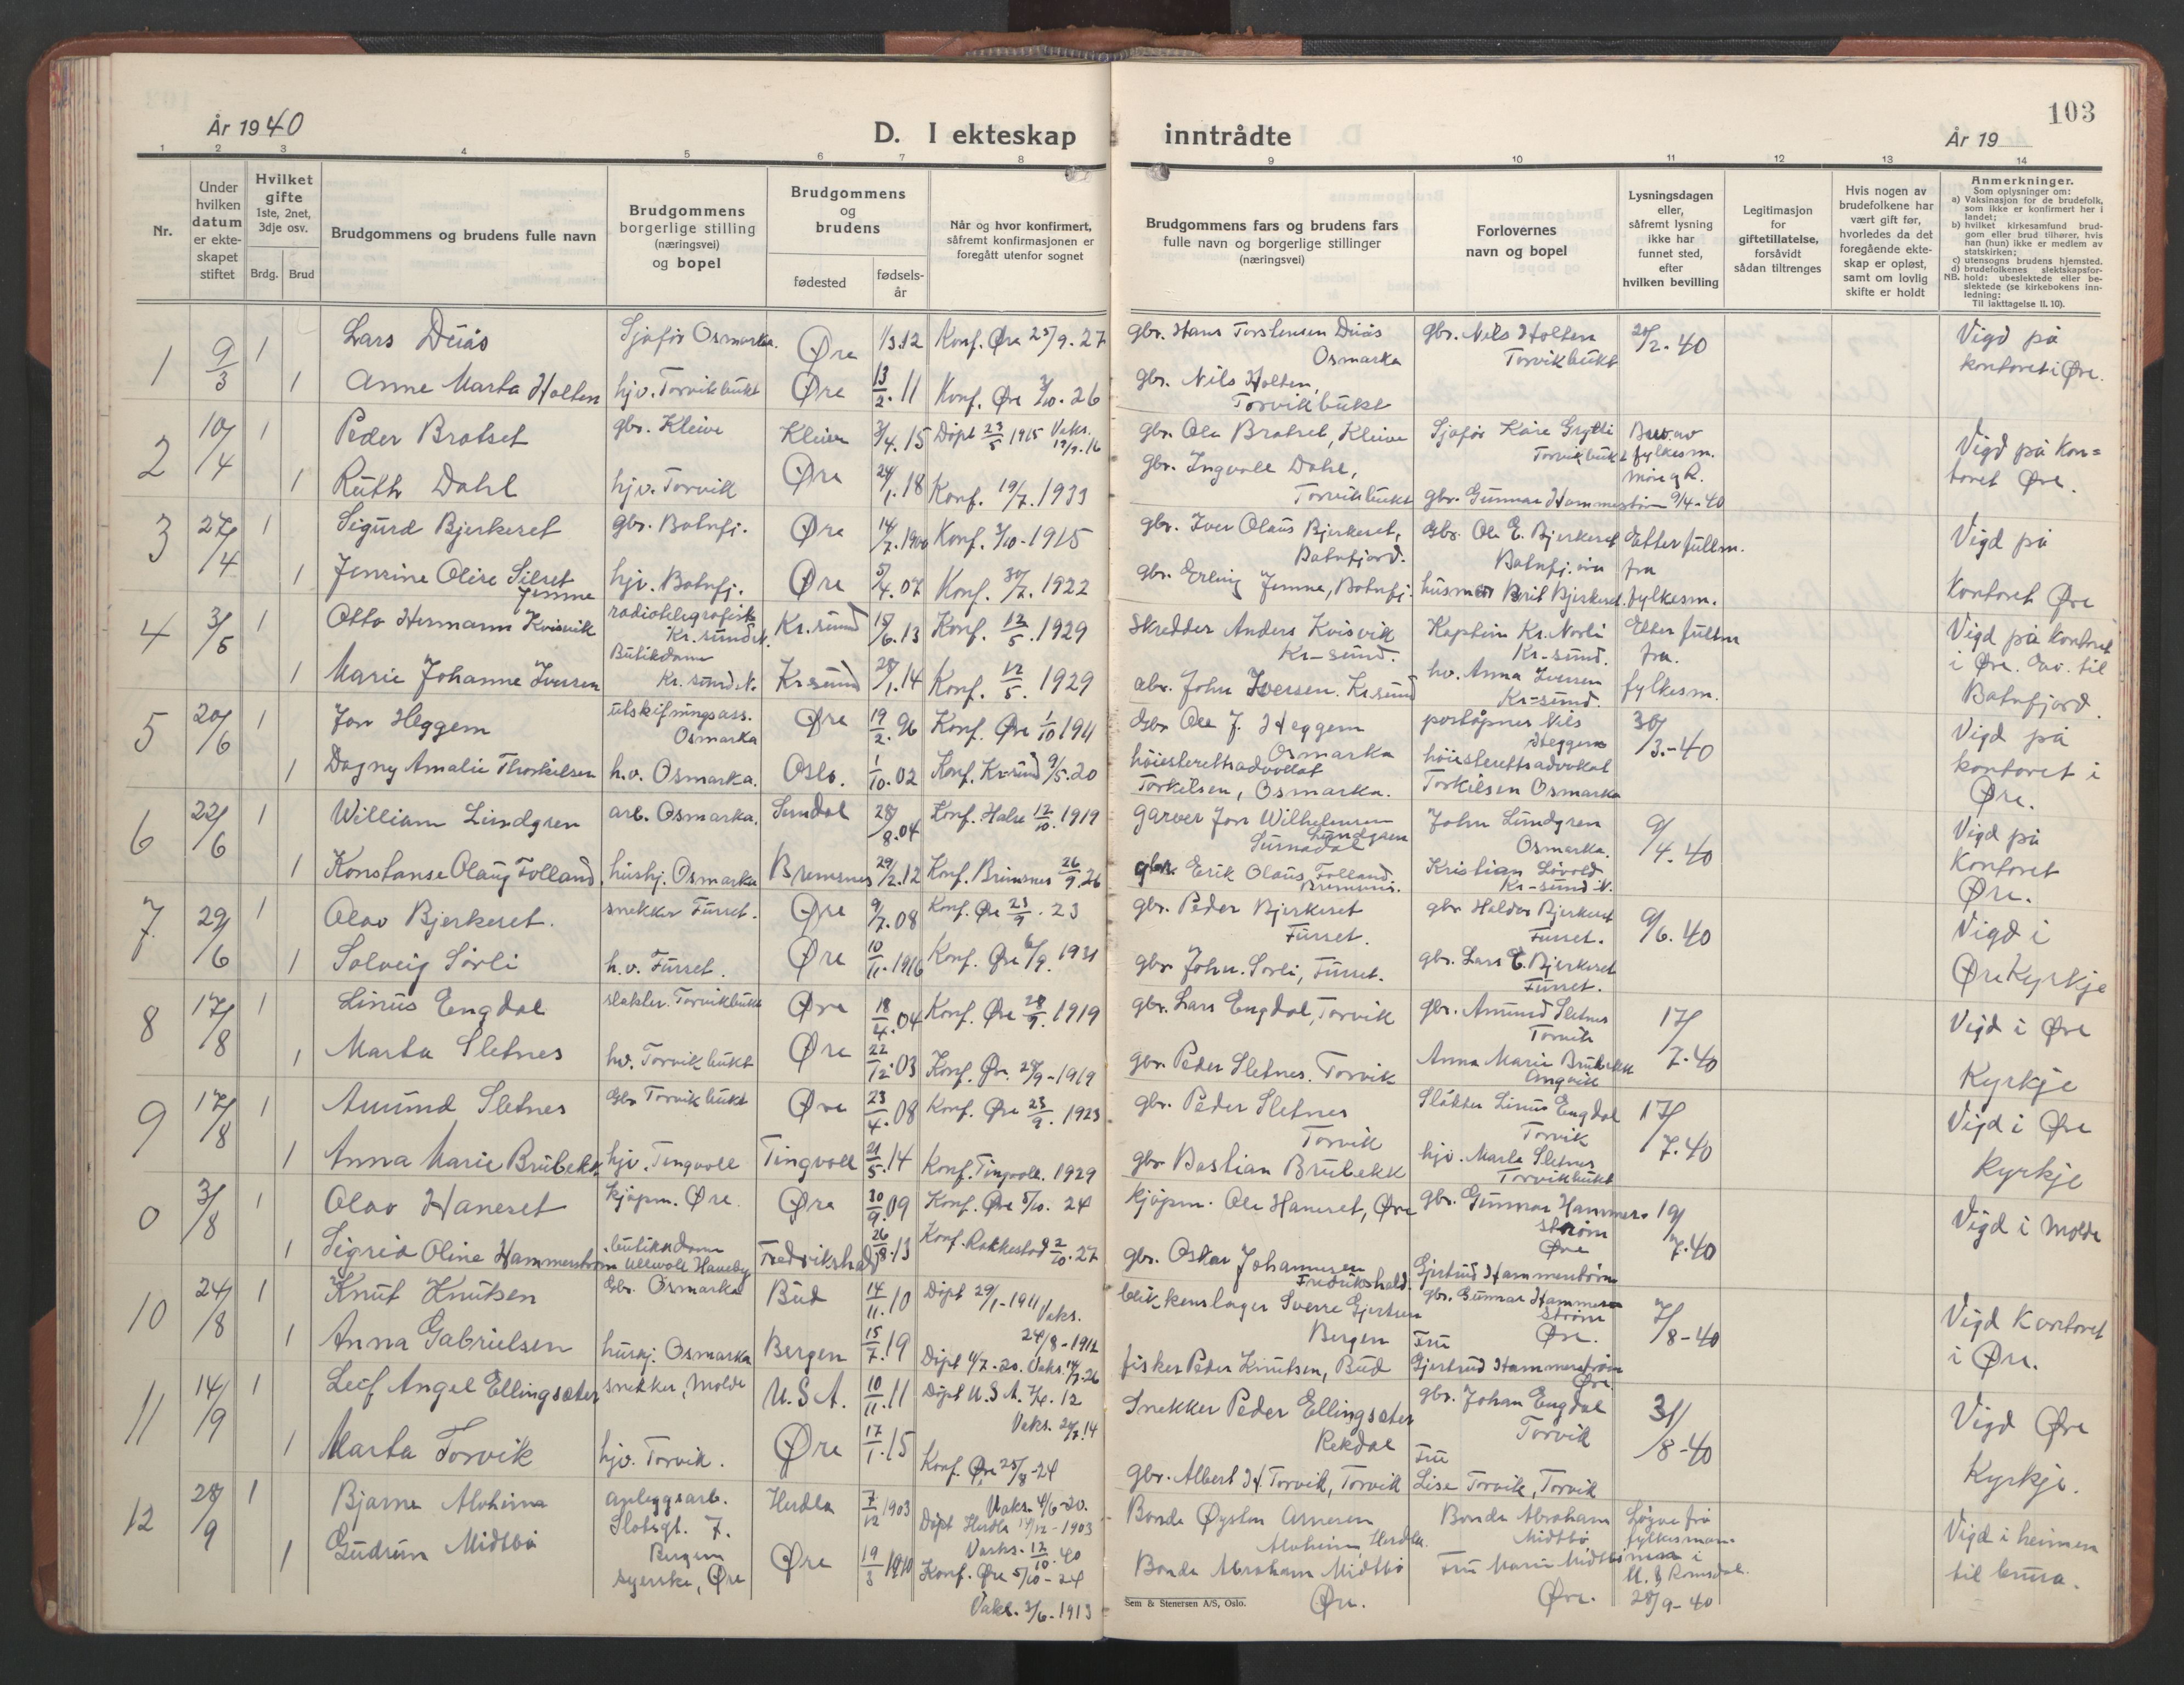 103
År 1940
D. I ekteskap inntrådte
År 19
1 2 3 4 5 6 7 8 9 10 11 12 13 14
Nr.
Under hvilken datum er ekteskapet stiftet
Hvilket gifte 1ste, 2net, 3dje osv.
Brdg. Brud
Brudgommens og brudens fulle navn
Brudgommens borgerlige stilling (næringsvei) og bopel
Brudgommens og brudens
fødested
fødselsår
Når og hvor konfirmert, såfremt konfirmasjonen er foregått utenfor sognet
Brudgommens fars og brudens fars fulle navn og borgerlige stillinger (næringsvei)
Forlovernes navn og bopel
Lysningsdagen eller, såfremt lysning ikke har funnet sted, efter hvilken bevilling
Legitimasjon for giftetillatelse, forsåvidt sådan tiltrenges
Hvis nogen av brudefolkene har vært gift før, hvorledes da det foregående ekteskap er opløst, samt om lovlig skifte er holdt
Anmerkninger.
Som oplysninger om:
a) Vaksinasjon for de brudefolk, som ikke er konfirmert her i landet;
b) hvilket kirkesamfund brudgom eller brud tilhører, hvis han (hun) ikke er medlem av statskirken;
c) utensogns brudens hjemsted.
d) brudefolkenes slektskapsforhold: ubeslektede eller beslektede (se kirkebokens innledning:
NB.
Til iakttagelse II, 10).
1 9/3 1 Lars Duås Sjåfør Osmarka. Øre 1/3.12 Konf. Øre 25/9.27 gbr. Hans Torstensen Duås Osmarka gbr. Nils Holten Torvikbukt /2.40 Vigd på kontoret i Øre.
1 Anne Marta Holten hjv. Torvikbukt Øre 13/2.11 Konf. Øre 3/10.26 gbr. Nils Holten, Torvikbukt
2 10/4 1 Peder Bratset gbr. Kleive Kleive 3/4.15 Døpt 23/5 1915 Vaks. 19/9.16 gbr. Ole Bratset, Kleive Sjåfør Kåre Grytli Torvikbukt Bev. av fylkesm. Møre og R. 9/4-40 Vigd på kontoret Øre.
1 Ruth Dahl hjv. Torvik Øre 24/1.18 Konf. 19/7.1933 gbr. Ingvall Dahl, Torvikbukt gbr. Gunnar Hammerstrøm
3 27/4 1 Sigurd Bjerkeset gbr. Batnfj. Øre 14/7.1900 Konf. 3/10-1915 gbr. Iver Olaus Bjerkeset, Batnfjord. Gbr. Ole E. Bjerkeset Batnfj.øra Etter fullm. fra fylkesm. Vigd på Kontoret Øre
1 Jensine Oline Silset Jemne hjv. Batnfj. Øre 5/4.07 Konf. 30/7.1922 gbr. Erling Jemne, Batnfj. husmor Berit Bjerkeset
4 3/5 1 Otto Hermann Kvisvik radiotelegrafist Kr.sund N. Kr.sund 15/6.13 Konf. 12/5.1929 Skredder Anders Kvisvik Kr-sund. Kaptein Kr. Norli Kr-sund. Etter fullm fra. fylkesm. Vigd på kontoret i Øre. Ov. til Batnfjord.
1 Marie Johanne Iversen Butikdame Kr. sund N. Kr.sund 28/1.14 Konf. 12/5.1929 abr. John Iversen. Kr.sund hv. Anna Iversen Kr-sund.
5 20/6 1 Jon Heggem utskiftningsass. Osmarka Øre 19/2.96 Konf. Øre 1/10 1911 Gbr Ole J. Heggem Osmarka poståpner Nils Heggem 30/3.-40 Vigd på kontoret i Øre.
1 Dagny Amalie Thorkilsen h.v. Osmarka. Oslo. 1/10.02 Konf. Kr.sund 9/5.20 høiesterettsadvokat Torkilsen, Osmarka. høiesterettsadvokat Torkilsen Osmarka
6 22/6 1 William Lundgren arb. Osmarka. Sundal 28/8.04 Konf. Halse 12/10.1919 garver Jon Wilhelmsen Lundgren Surnadal John Lundgren Osmarka. 9/4.40 Vigd på Kontoret Øre.
1 Konstanse Olaug Folland hushj. Osmarka Bremsnes 29/2.12 Konf. Bremsnes 26/9.26 gbr. Erik Olaus Folland Bremsnes. Kristian Løvold Kr-sund N.
7 29/6 1 Olav Bjerkeset. snekker Furset. Øre 9/7.08 Konf. Øre 23/9.23 gbr. Peder Bjerkeset Furset. gbr Halder Bjerkeset Furset. 9/6.40 Vigd i Øre Kyrkje
1 Solveig Sørli h.v. Furset. Øre 10/11.1916 Konf. Øre 6/9.1931 gbr. John. Sørli, Furset. gbr. Lars E. Bjerkeset Furset.
8 17/8 1 Linus Engdal slakter. Torvikbukt Øre 18/4.04 Konf. Øre 28/9.1919 gbr. Lars Engdal, Torvik gbr. Amund Sletnes Torvik 17/7.40 Vigd i Øre Kyrkje
1 Marta Sletnes hv. Torvikbukt Øre 22/12.03 Konf. Øre 28/9-1919 gbr. Peder Sletnes. Torvik Anna Marie Brubekk Angvik
9 17/8 1 Amund Sletnes Gbr Torvikbukt Øre 23/4.08 Konf. Øre 23/9.1923 gbr. Peder Sletnes Torvik Slakter Linus Engdal Torvik 17/7.40 Vigd i Øre Kyrkje
1 Anna Marie Brubekk hjv. Tingvoll Tingvoll 21/5.14 Konf. Tingvoll. 1929 gbr Bastian Brubekk hjv. Marta Sletnes Torvikbukt
0 3/8 1 Olav Haneset kjøpm. Øre. Øre 30/9.09 Konf. Øre 5/10.24 kjøpm. Ole Haneset, Øre gbr. Gunnar Hammerstrøm Øre 19/7.40 Vigd i Molde
1 Sigrid Oline Hammerstrøm butikkdame Ullevål Haveby Fredrikshald 26/8.13 Konf. Rakkestad 2/10.27 gbr. Oskar Johannesen Fredrikshald. Gjertrud Hammerstrøm
10 24/8 1 Knut Knutsen Gbr. Osmarka Bud 14/11.10 Døpt 29/1-1911 Vaks. 24/8-1912 blikkenslager Sverre Gjertsen Bergen gbr. Gunnar Hammerstrøm Øre. 7/8-40 Vigd Kontoret i Øre.
1 Anna Gabrielsen hushj. Osmarka Bergen 15/7.19 Døpt 4/7-20. Vaks. 26 fisker Peder Knutsen, Bud Fru Gjertrud Hammerstrøm Øre.
11 14/9 1 Leif Angel Ellingsæter snekker, Molde U.S.A. 10/11.11 Døpt U.S.A. 7/4.12 Vaks. 14 Snekker Peder Ellingsæter Rekdal gbr. Johan Engdal Torvik 31/8-40 Vigd Øre Kyrkje.
1 Marta Torvik hjv. Torvik. Øre 17/1.15 Konf. Øre 25/8-29 gbr. Albert H. Torvik, Torvik Fru Lise Torvik, Torvik
Vaks. 4/6-20.
12 28/9 1 Bjarne Alvheim anleggsarb. Slotsgt. 7. Bergen Herdla 7/12 1903 Døpt Herdla 19/12-1903 Vaks. 12/10.40 Bonde Øystein Arnesen Alvheim, Herdla. Bonde Abraham Midtbø Løyve frå fylkesmannen i M. & Romsdal. 28/9-40 Vigd i heimen til brura.
1 Gudrun Midtbø syerske, Øre Øre 19/3 1910 Konf. Øre 5/10-24 Vaks. 3/6-1913 Bonde Abraham Midtbø Øre. Fru Marie Midtbø Øre.
Sem & Stenersen A/S, Oslo.